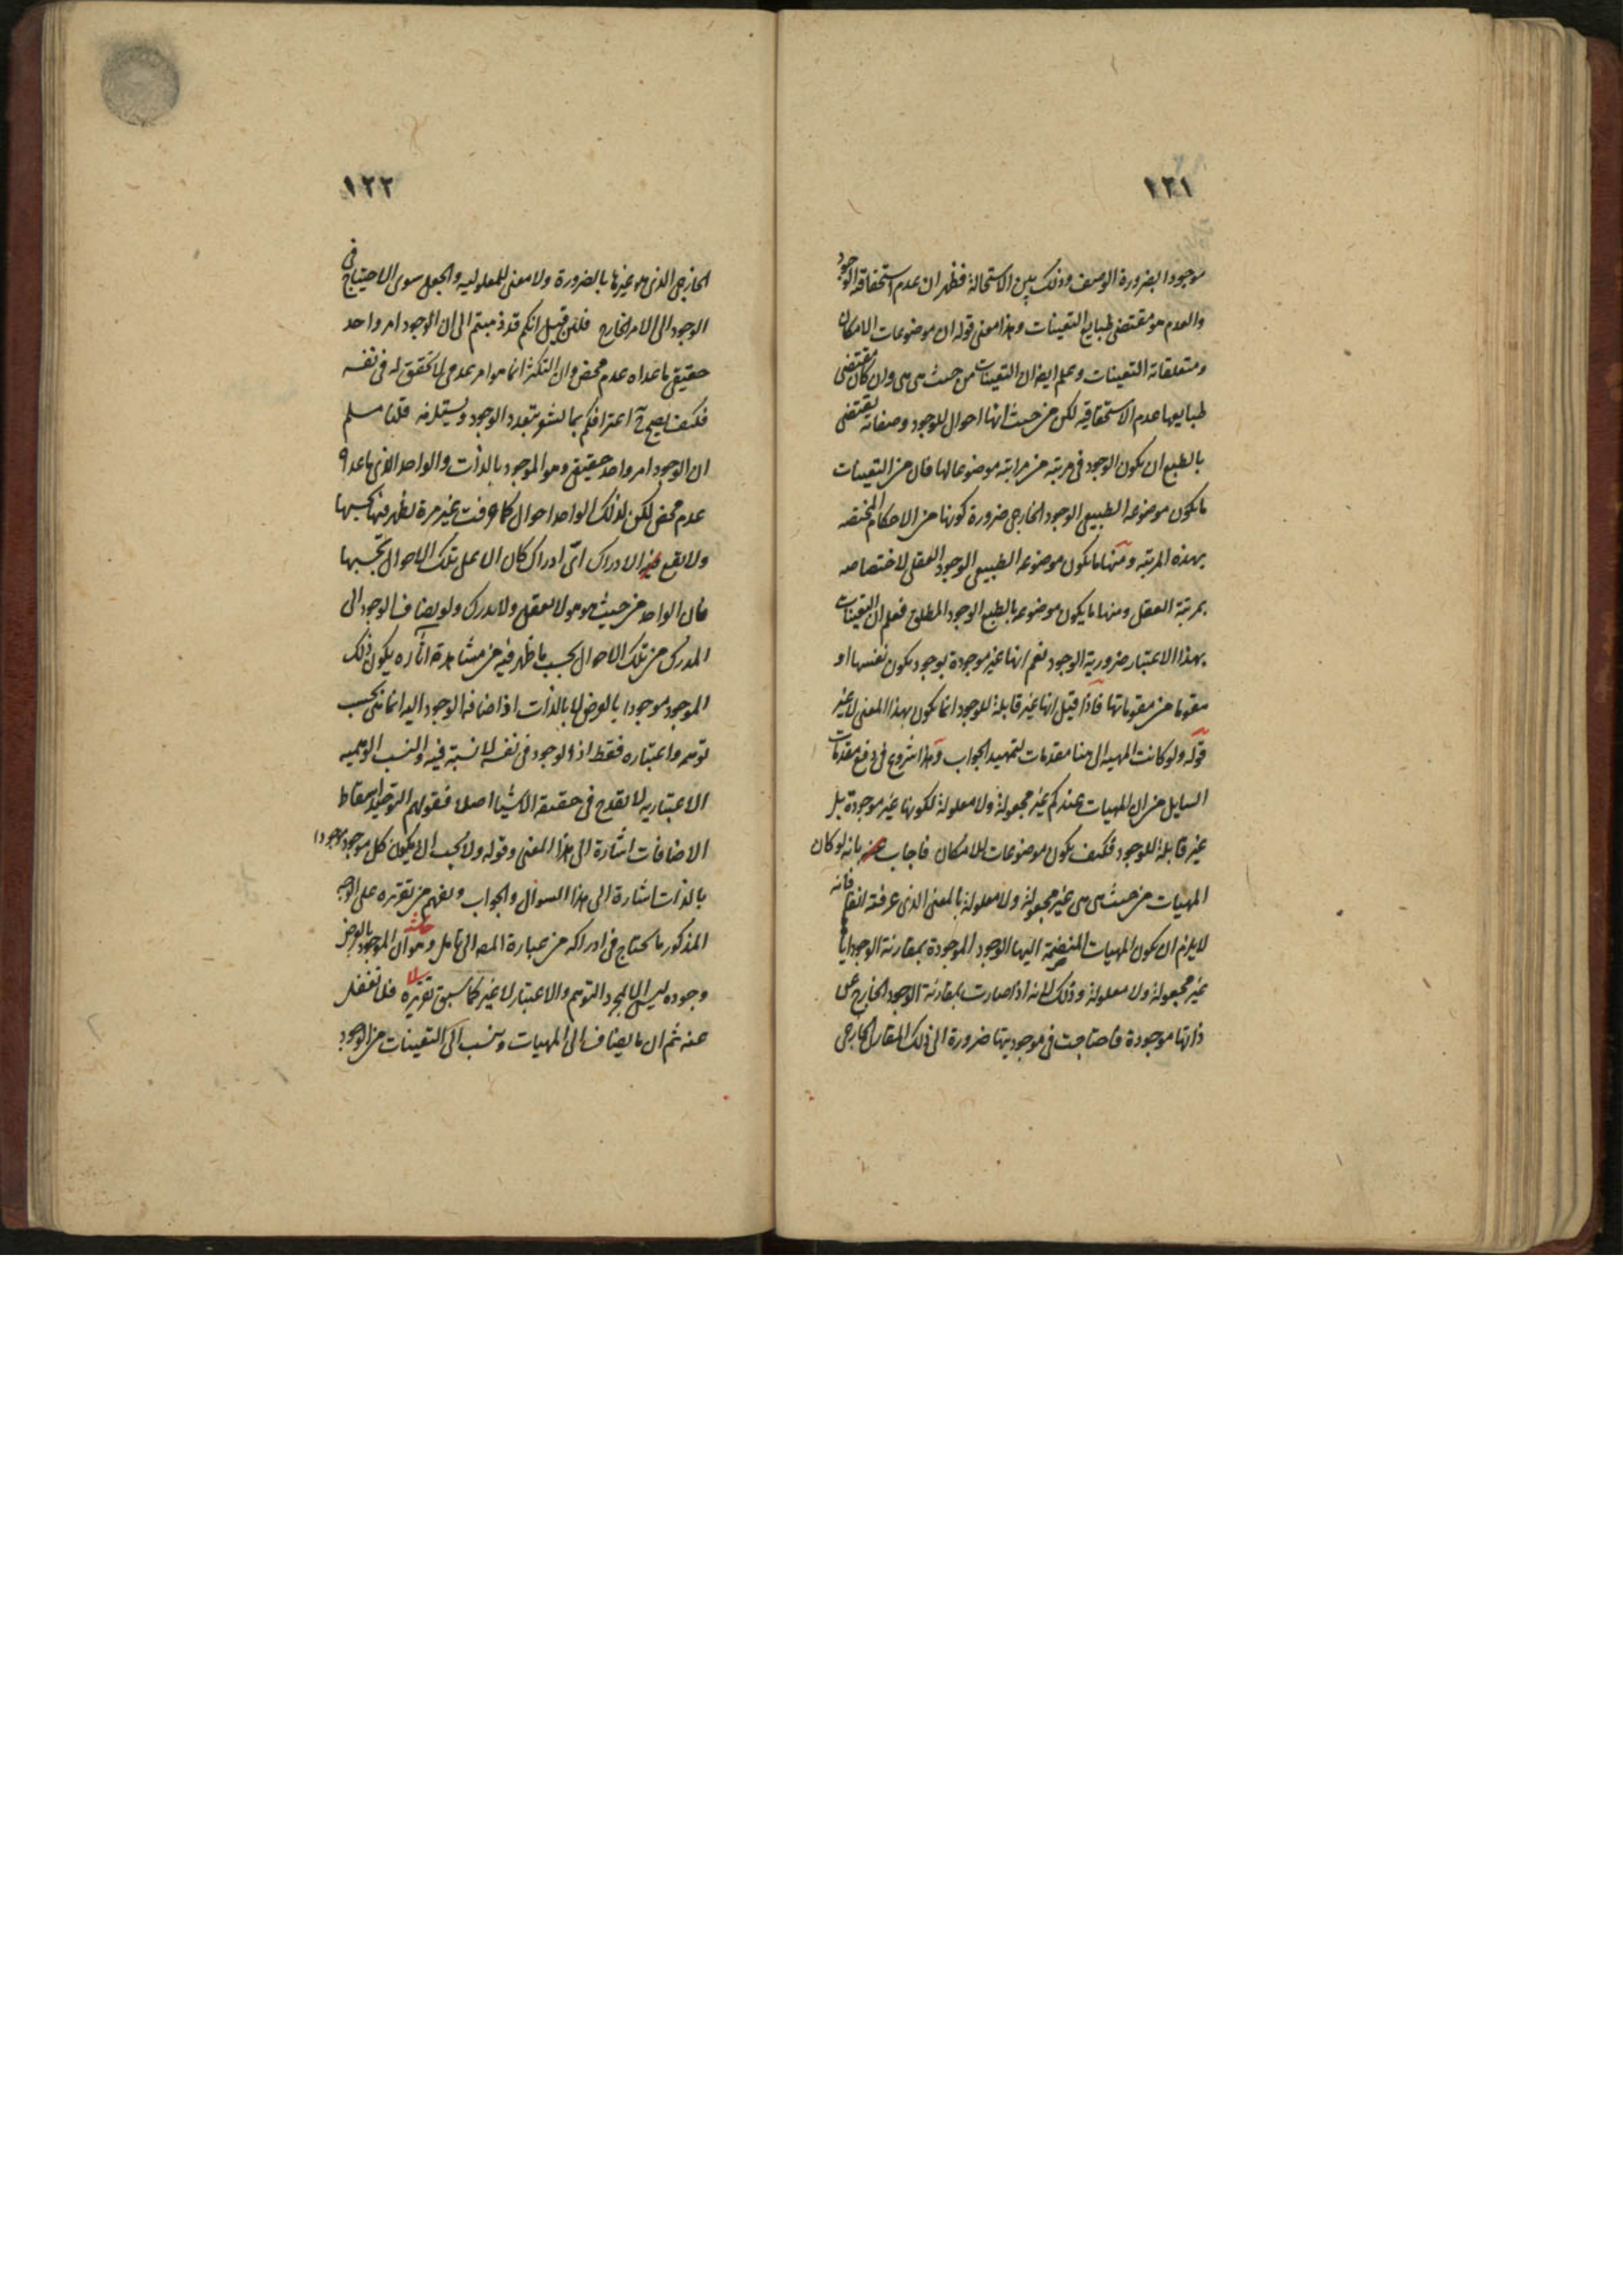 ١٢١
موجودا بضرورة الوصف وذلك بين الاستحالة فظهر ان عدم استحقاقه الوجود
والعدم هو مقتضى طبايع التعينات وهذا معنى قوله ان موضوعات الامكان
ومتعلقاته التعينات وعلم ايضا ان التعينات من حيث هى هى وان كان مقتضى
طبايعها عدم الاستحقاقيه لكن من حيث انها احوال للوجود وصفاته يقتضى
بالطبع ان يكون الوجود فى مرتبة من مراتبه موضوعا لها فان من التعينات
ما يكون موضوعه الطبيعى الوجود الخارجى ضرورة كونها من الاحكام المختصه
بهذه المرتبه ومنها ما يكون موضوعه الطبيعى الوجود العقلى لاختصاصه
بمرتبة العقل ومنها ما يكون موضوعه بالطبع الوجود المطلق فعلم ان التعينات
بهذا الاعتبار ضرورية الوجود نعم انها غير موجودة بوجود يكون نفسها او
مقوما من مقوماتها فاذا قيل انها غير قابلة للوجود انما يكون بهذا المعنى لا غير
قوله ولو كانت المهيه الى هنا مقدمات لتمهيد الجواب وهذا شروع فى دفع مقدمات
السايل من ان المهيات عندكم غير مجعولة ولا معلولة لكونها غير موجودة بل
غير قابلة للوجود فكيف يكون موضوعات للامكان فاجاب عنه بانه لو كان
المهيات من حيث هى هى غير مجعولة ولا معلولة بالمعنى الذى عرفته انفا فانه
لا يلزم ان يكون المهيات المنضمة اليها الوجود الموجودة بمقارنة الوجود اياها
غير مجعولة ولا معلولة وذلك لانه اذا صارت بمقارنة الوجود الخارج عن
ذاتها موجودة فاحتاجت فى موجوديتها ضرورة الى ذلك المقارن الخارجى
١٢٢
الخارجى الذى هو غيرها بالضرورة ولا معنى للمعلوليه والجعل سوى الاحتياج فى
الوجود الى الامر الخارج فلئن قيل انكم قد ذهبتم الى ان الوجود امر واحد
حقيقى ما عداه عدم محض وان التكثر انما هو امر عدمى لا تحقق له فى نفسه
فكيف يصح اعترافكم بما يشعر بتعدد الوجود ويستلزمه قلنا مسلم
ان الوجود امر واحد حقيقى وهو الموجود بالذات والواحد الذى ما عداه
عدم محض لكن لذلك الواحد احوال كما عرفت غير مرة يظهر فيها بحسبها
ولا يقع الادراك اى ادراك كان الا على تلك الاحوال بحسبها
فان الواحد من حيث هو هو لا يعقل ولا يدرك ولو يضاف الوجود الى
المدرك من تلك الاحوال بحسب ما ظهر فيه من مشاهدة اثاره يكون ذلك
الموجود موجودا بالعرض لا بالذات اذ اضافه الوجود اليه انما هى بحسب
توهمه واعتباره فقط اذ الوجود فى نفسه لا نسبة فيه والنسب الوهميه
الاعتباريه لا يقدح فى حقيقة الاشيا اصلا فقولهم التوحيد اسقاط
الاضافات اشارة الى هذا المعنى وقوله ولا يجب ان يكون كل موجود موجودا
بالذات اشارة الى هذا السوال والجواب ويفهم من تقريره على الوجه
المذكور ما يحتاج فى ادراكه من عبارة المصه الى تامل وهو ان الموجود بالعرض
وجوده ليس الا بمجرد التوهم والاعتبار لا غير كما سبق تقريره فلا تغفل
عنه ثم ان ما يضاف الى المهيات وينسب الى التعينات من الوجود